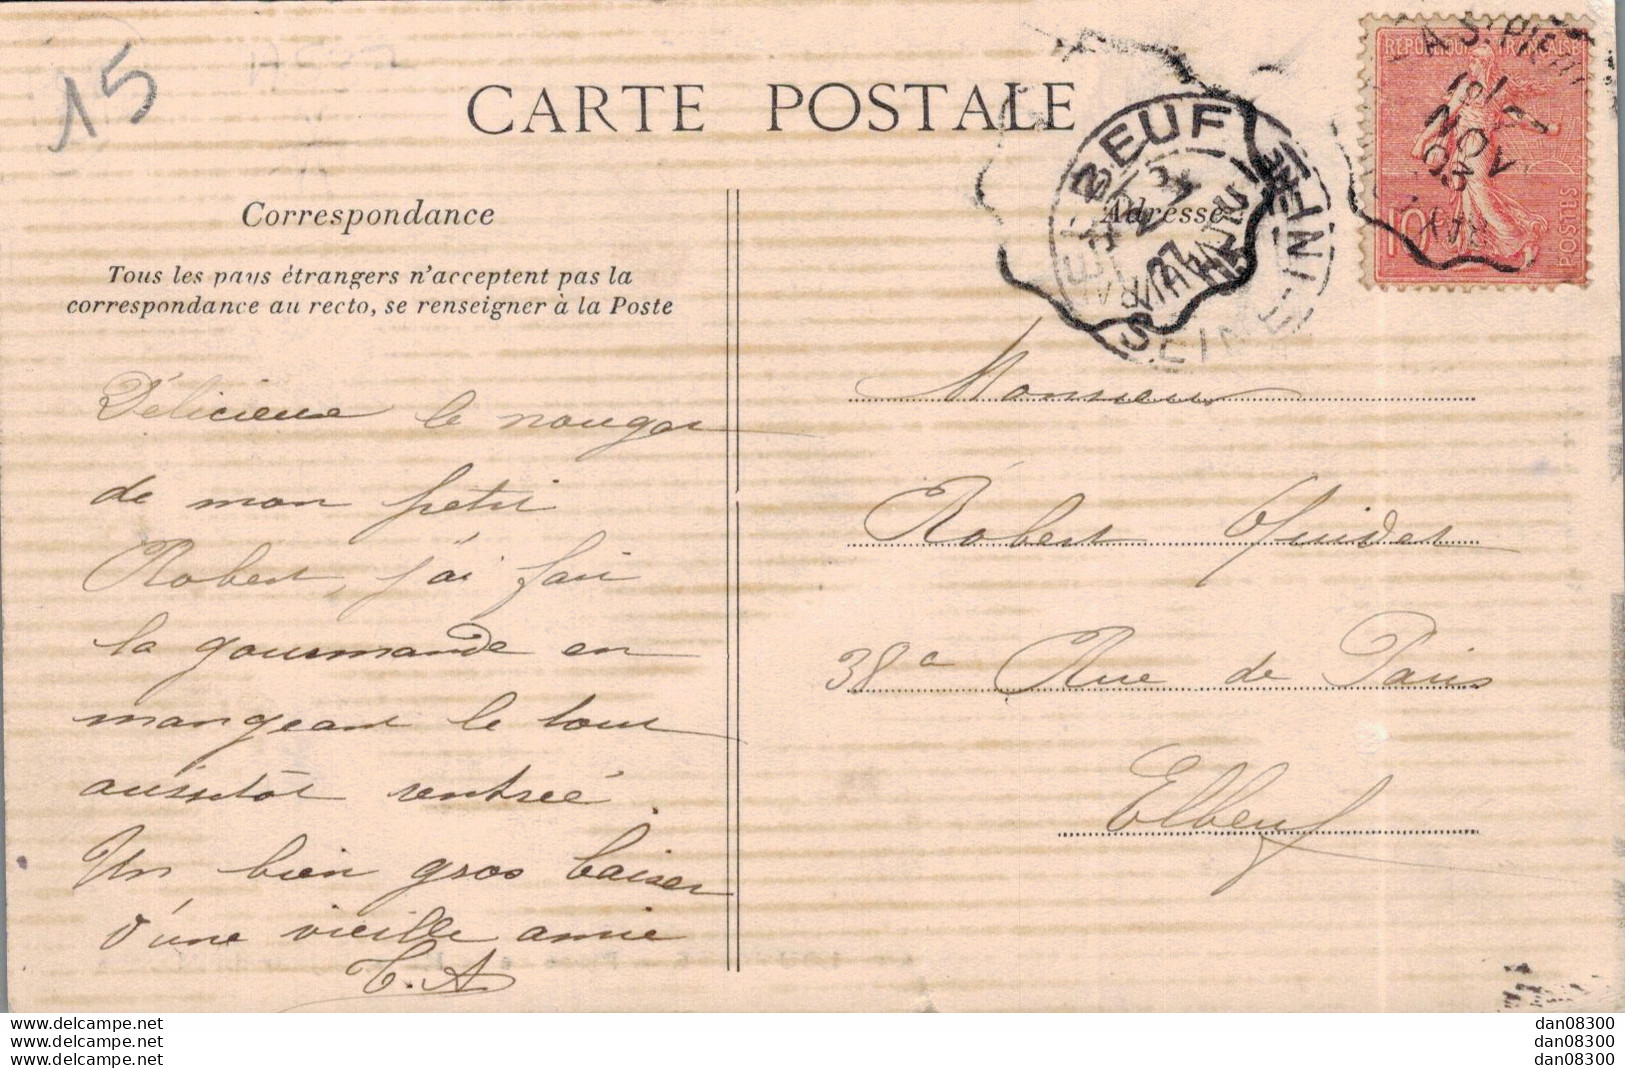 15
CARTE POSTALE
Correspondance
Tous les pays étrangers n'acceptent pas la
correspondance au recto, se renseigner à la Poste
Adresse
REPUBLIQUE FRANÇAISE
10
POSTES
NOV
03
BEUF
SEINE-INF
Délicieux le nougat
de mon petit
Robert, j'ai fait
la gourmande en
mangeant le tout
aussitôt rentrée.
Un bien gros baiser
d'une vieille amie
T. A
Monsieur
Robert
38 Rue de Paris
Elbeuf
www.delcampe.net
www.delcampe.net
www.delcampe.net
dan08300
dan08300
dan08300